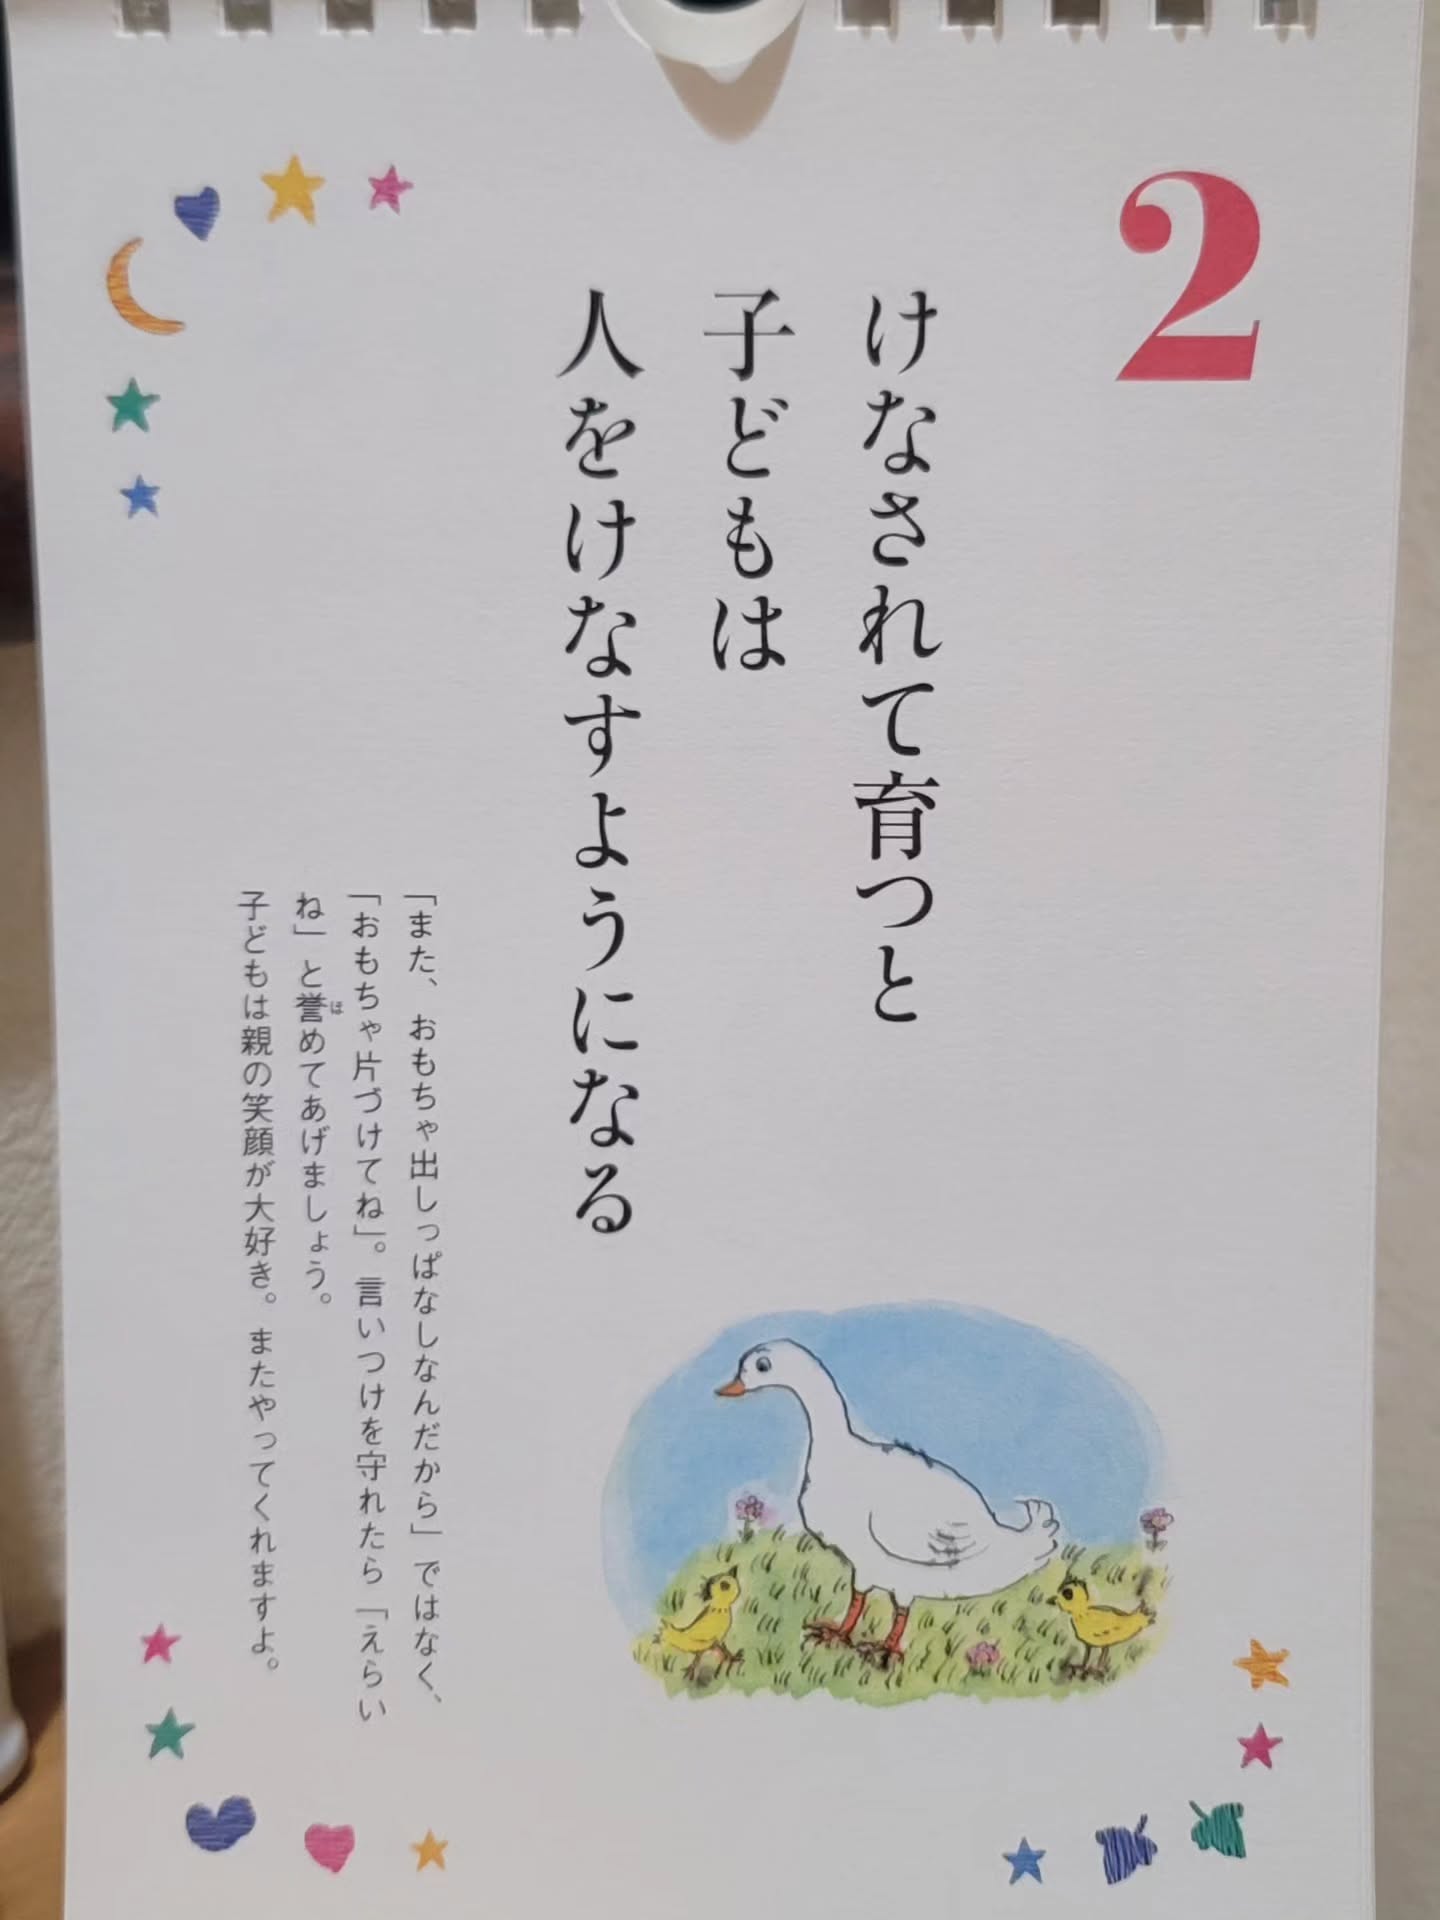 2
けなされて育つと
子どもは
人をけなすようになる
「また、おもちゃ出しっぱなしなんだから」ではなく、
「おもちゃ片づけてね」。言いつけを守れたら「えらい
ね」と誉めてあげましょう。
ほ
子どもは親の笑顔が大好き。またやってくれますよ。